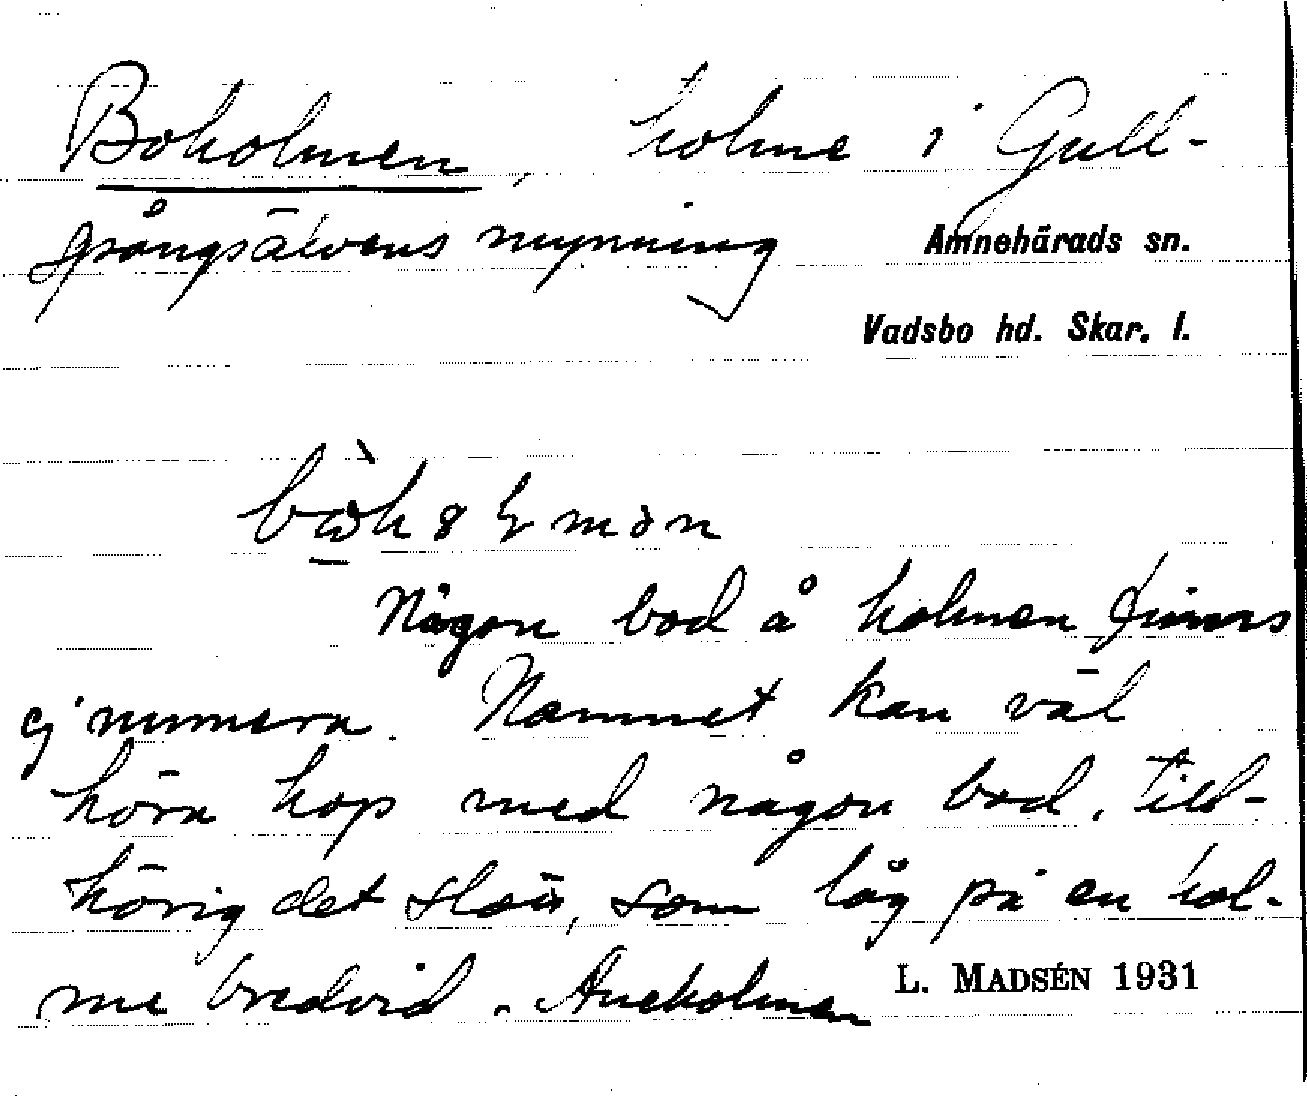 Boholmen, holme i Gull-
spångsälvens mynning
Amnehärads sn.
Vadsbo hd. Skar. l.
Någon bod å holmen finns
ej numera. Namnet kan väl
höra hop med någon bod, till-
hörig det slott, som låg på en hol-
me bredvid. Aneholmen
L. MADSÉN 1931